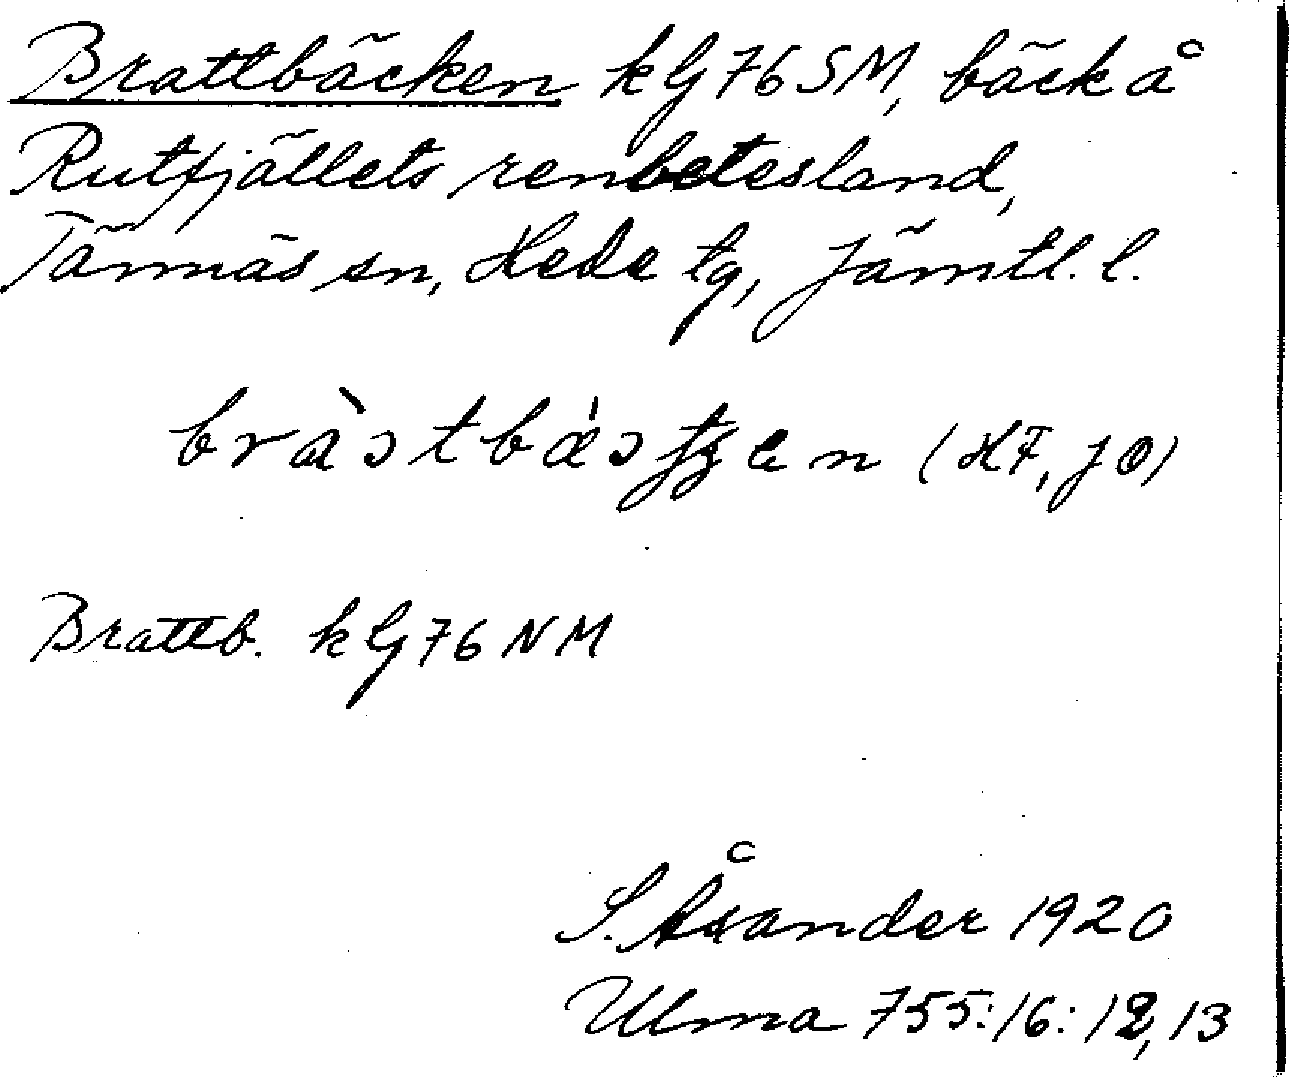 Brattbäcken kG76SM, bäck å
Rutfjällets renbetesland,
Tännäs sn, Hede tg, Jämtl. l.
(HF, JO)
Brattb. kG76NM
S. Åsander 1920
Ulma 755:16:12,13